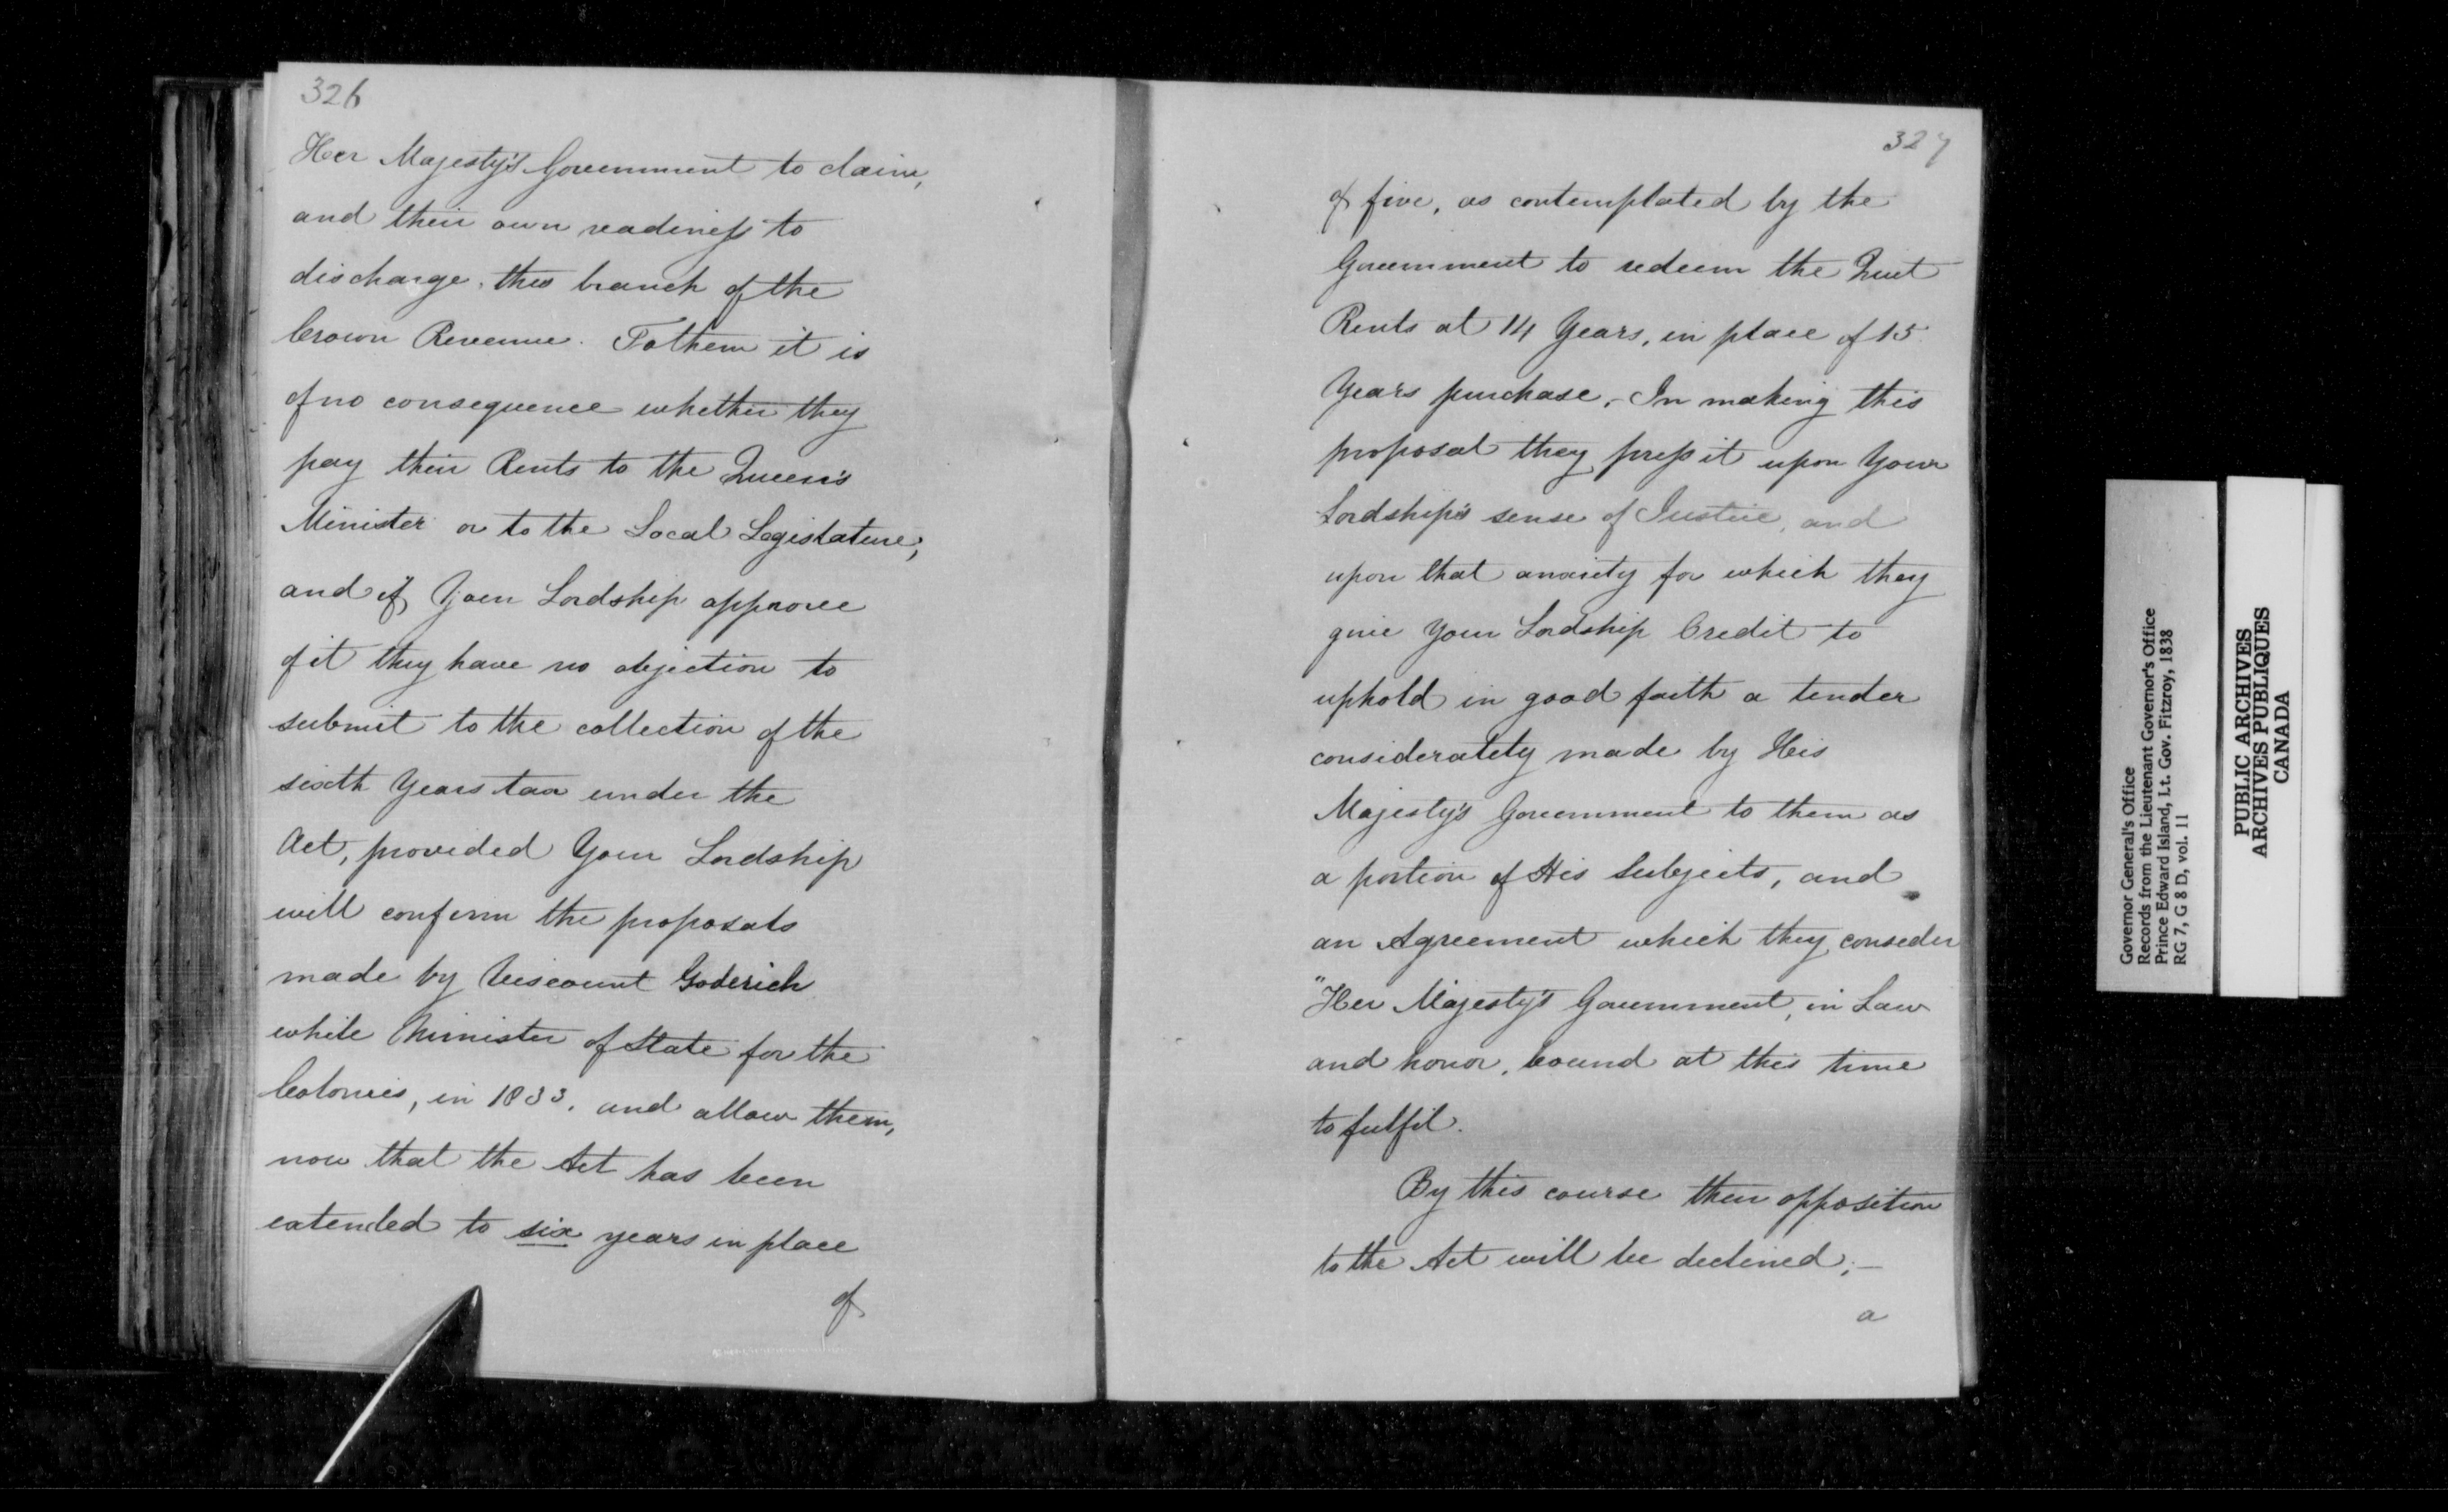 326
Her Majesty's Government to claim,
and their own readiness to
discharge, this branch of the
Crown Revenue. To them it is
of no consequence whether they
pay their Rents to the Queen's
Minister or to the Local Legislature;
and if Your Lordship approve
of it they have no objection to
submit to the collection of the
sixth Years tax under the
Act, provided Your Lordship
will confirm the proposals
made by Viscount Goderich
while Minister of State for the
Colonies, in 1833, and allow them,
now that the Act has been
extended to six years in place
of
327
of five, as contemplated by the
Government to redeem the Quit
Rents at 14 Years, in place of 15
Years purchase. In making this
proposal they press it upon Your
Lordship's sense of Justice, and
upon that anxiety for which they
give Your Lordship Credit to
uphold in good faith a tender
considerately made by His
Majesty's Government to them as
a portion of His Subjects, and
an Agreement which they consider
"Her Majesty's Government, in Law
and honor, bound at this time
to fulfil.
By this course their opposition
to the Act will be declined;—
a
Governor General's Office
Records from the Lieutenant Governor's Office
Prince Edward Island, Lt. Gov. Fitzroy, 1838
RG 7, G 8 D, vol. 11
PUBLIC ARCHIVES
ARCHIVES PUBLIQUES
CANADA